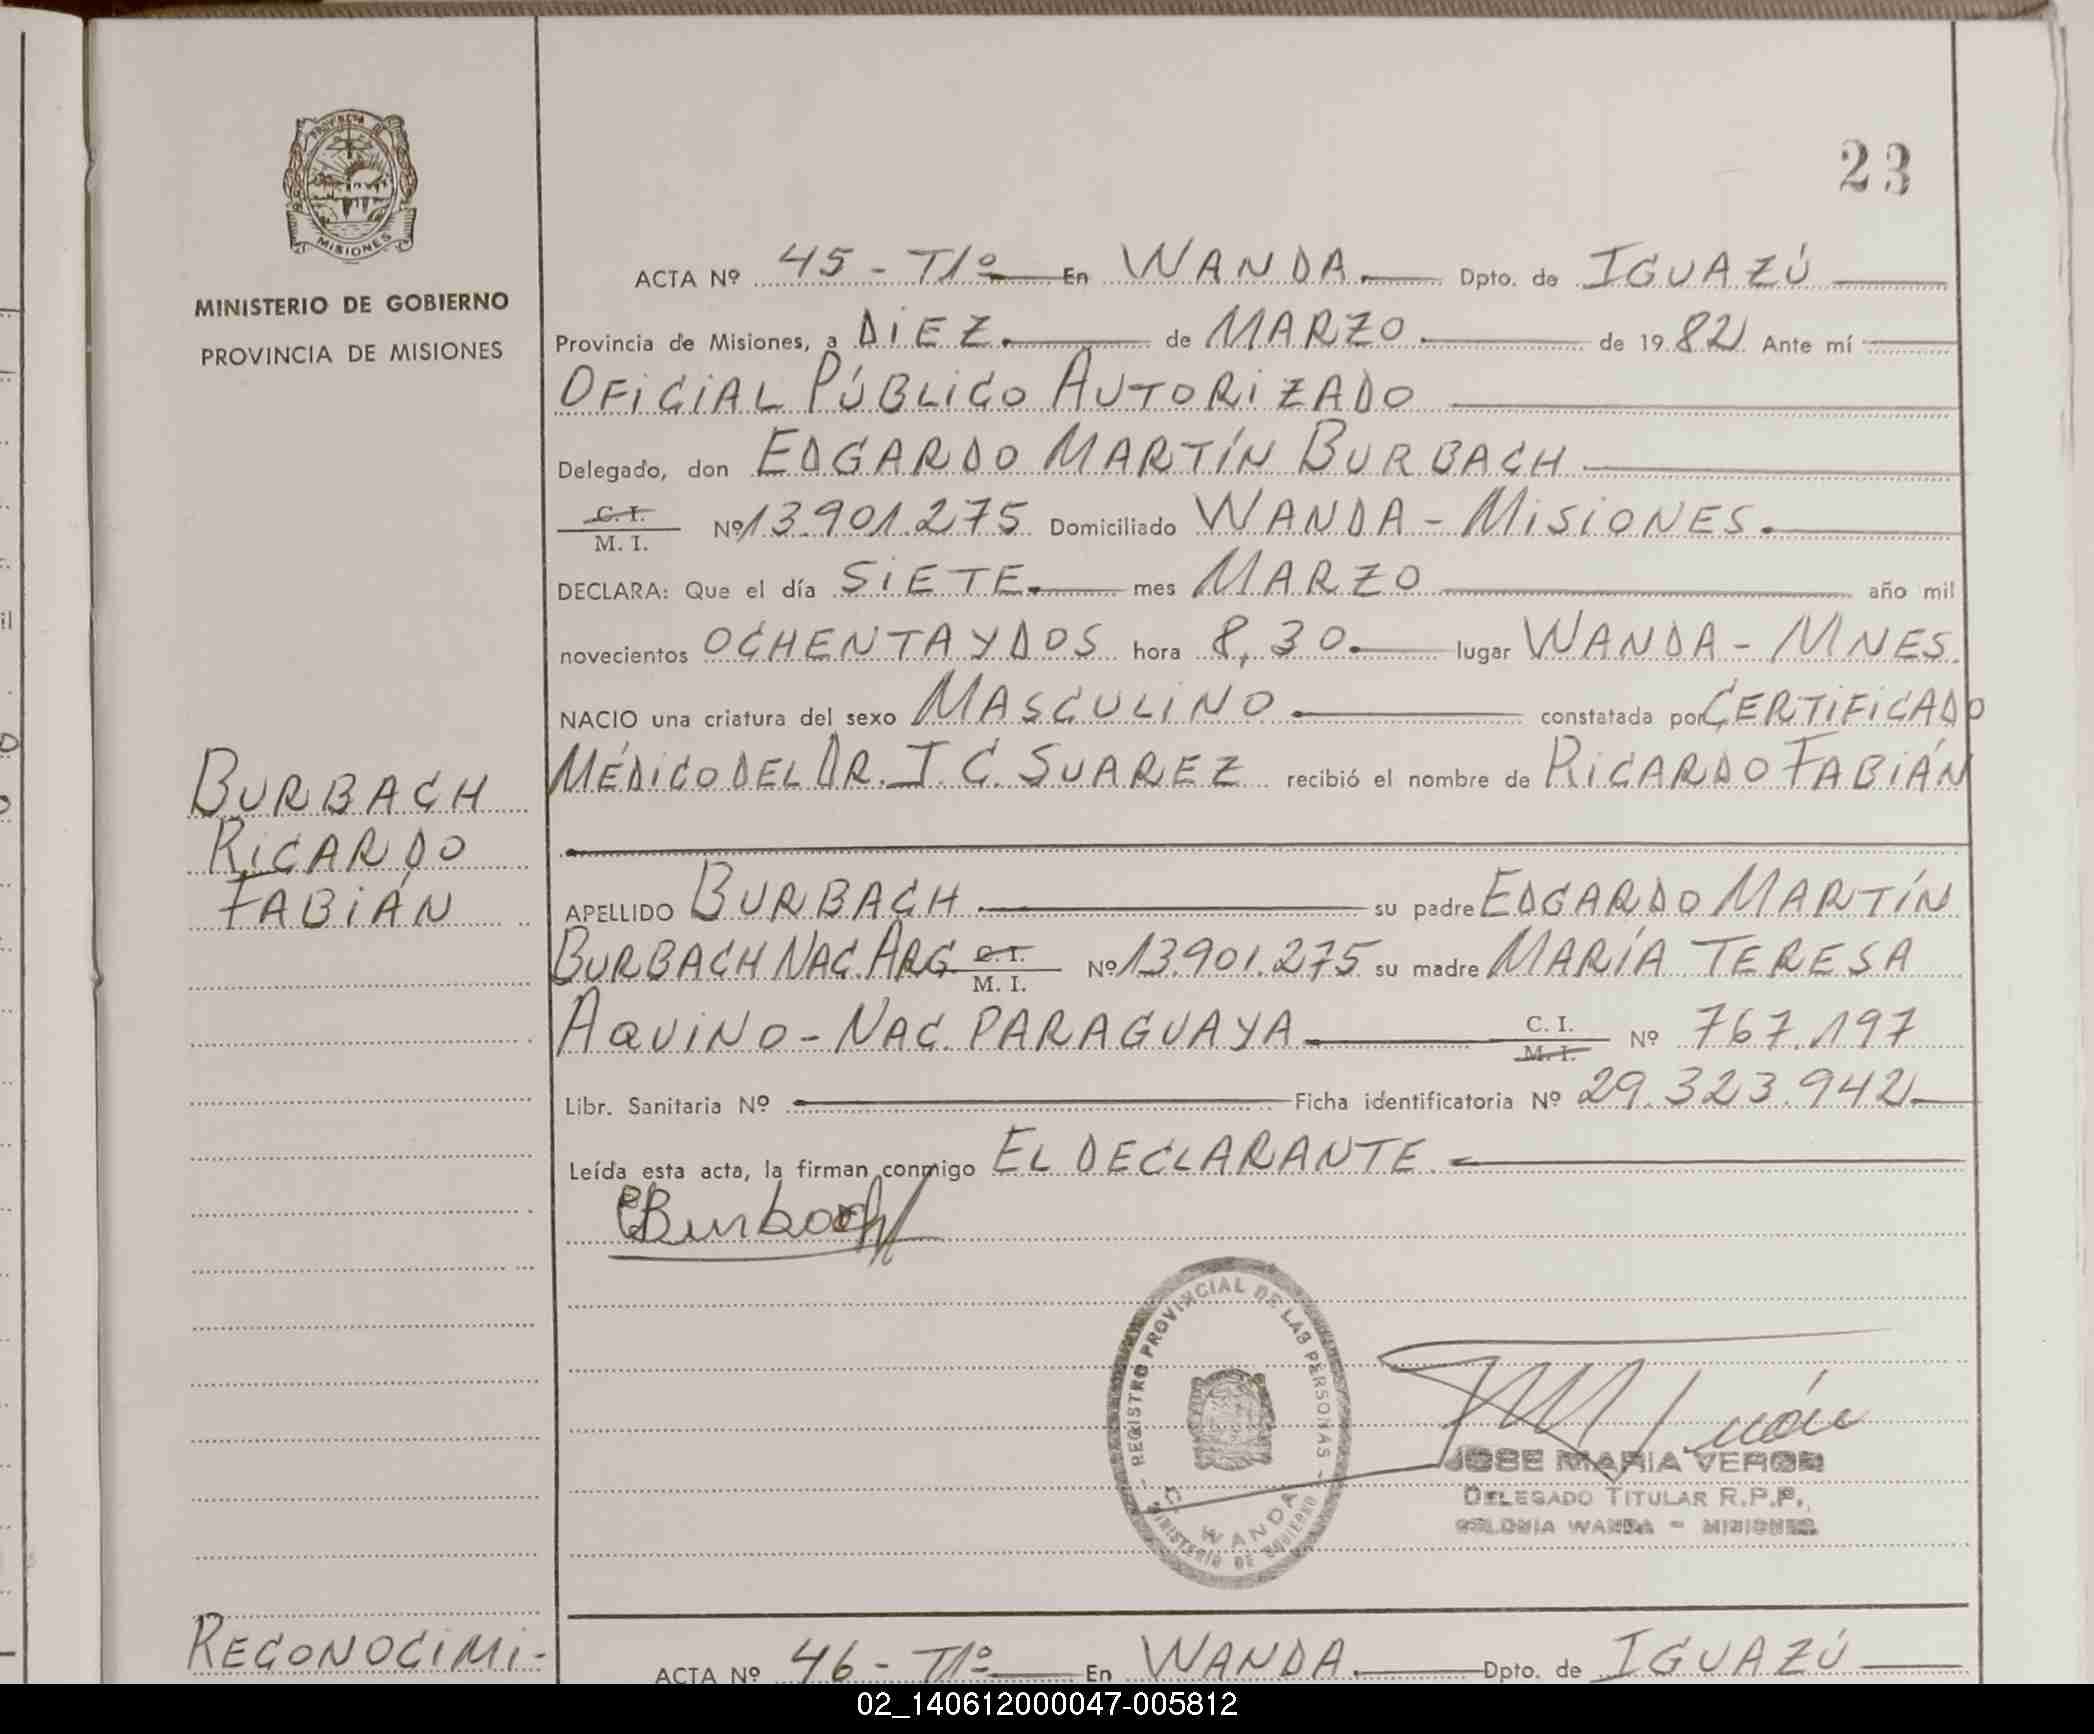 PROVINCIA DE
MISIONES
MINISTERIO DE GOBIERNO
PROVINCIA DE MISIONES
23
ACTA Nº 45 - T1º En WANDA. Dpto. de IGUAZÚ
Provincia de Misiones, a DIEZ. de MARZO. de 1982 Ante mí
OFICIAL PÚBLICO AUTORIZADO
Delegado, don EDGARDO MARTÍN BURBACH
C. I.
M. I. Nº 13.901.275 Domiciliado WANDA - MISIONES.
DECLARA: Que el día SIETE. mes MARZO año mil
novecientos OCHENTA Y DOS hora 8,30. lugar WANDA - MNES.
NACIO una criatura del sexo MASCULINO. constatada por CERTIFICADO
MÉDICO DEL DR. I. C. SUAREZ recibió el nombre de RICARDO FABIÁN
BURBACH
RICARDO
FABIÁN
APELLIDO BURBACH. su padre EDGARDO MARTÍN
BURBACH NAC. ARG C. I.
M. I. Nº 13.901.275 su madre MARÍA TERESA
AQUINO - NAC. PARAGUAYA. C. I.
M. I. Nº 767.197
Libr. Sanitaria Nº Ficha identificatoria Nº 29.323.942
Leída esta acta, la firman conmigo EL DECLARANTE.
EBurbach
REGISTRO PROVINCIAL DE LAS PERSONAS
C. WANDA
MINISTERIO DE GOBIERNO
JOSE MARIA VERON
DELEGADO TITULAR R.P.P.
COLONIA WANDA - MISIONES
RECONOCIMI-
ACTA Nº 46 - T1º En WANDA. Dpto. de IGUAZÚ
02_140612000047-005812